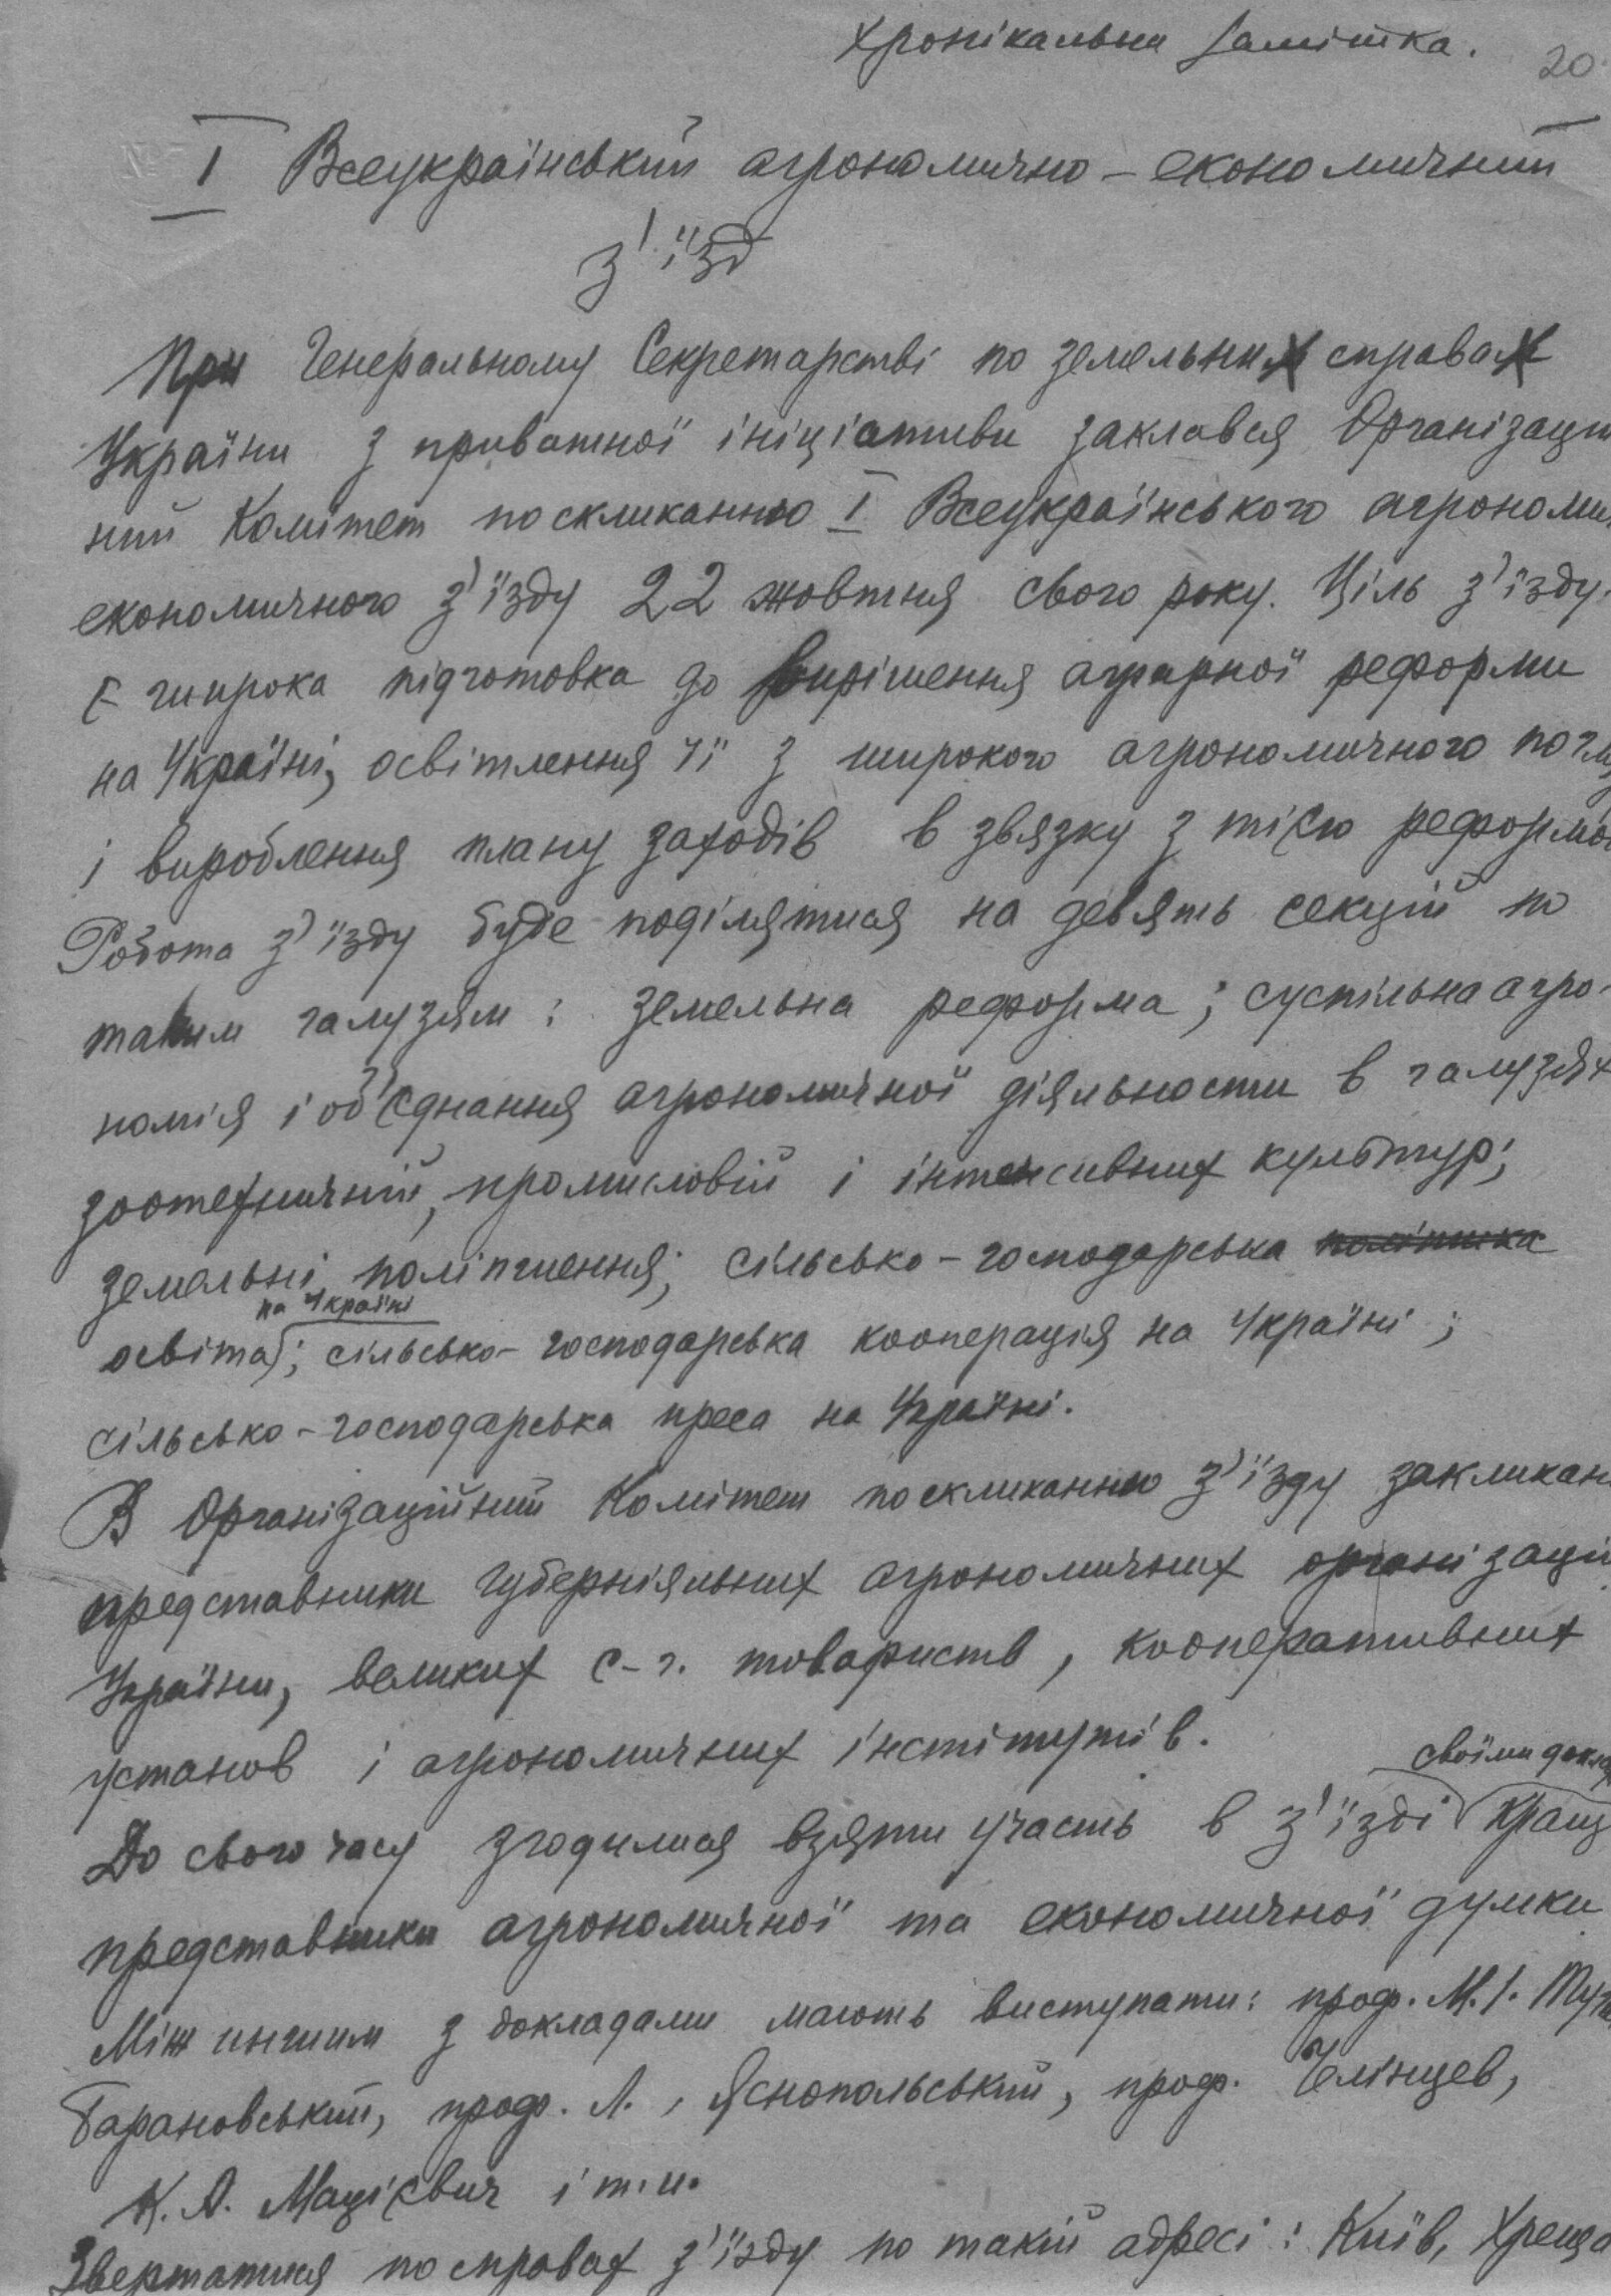 Хронікальна замітка.
20
I Всеукраїнський агрономично-економичний
з'їзд
При Генеральному Секретарстві по земельних справах
України з приватної ініціативи заклався Організацій
ний Комітет по скликанню I Всеукраїнського агрономич
економичного з'їзду 22 жовтня свого року. Ціль з'їзду
є широка підготовка до вирішення аграрної реформи
на Україні, освітлення її з широкого агрономичного погля
і вироблення плану заходів в звязку з тією реформо
Робота з'їзду буде поділятися на девять секцій по
таким галузям: земельна реформа; суспільна агро-
номія і об'єднання агрономичної діяльности в галузях
зоотехничній, промисловій і інтенсивних культур;
земельні поліпшення; сільсько-господарська політика
на Україні
освіта; сільсько-господарська кооперація на Україні;
сільсько-господарська преса на Україні.
В Організаційний Комітет по скликанню з'їзду закликан
представники губерніяльних агрономичних організацій
України, великих с-г. товариств, кооперативних
установ і агрономичних інстітутів.
своїми докла
До свого часу згодилися взяти участь в з'їзді кращ
представники агрономичної та економичної думки
Між иншим з докладами мають виступати: проф. М.І. Туга
Барановський, проф. Л. Яснопольський, проф. Челінцев,
К.А. Мацієвич і т.и.
Звертатися по справах з'їзду по такій адресі: Київ, Хреща